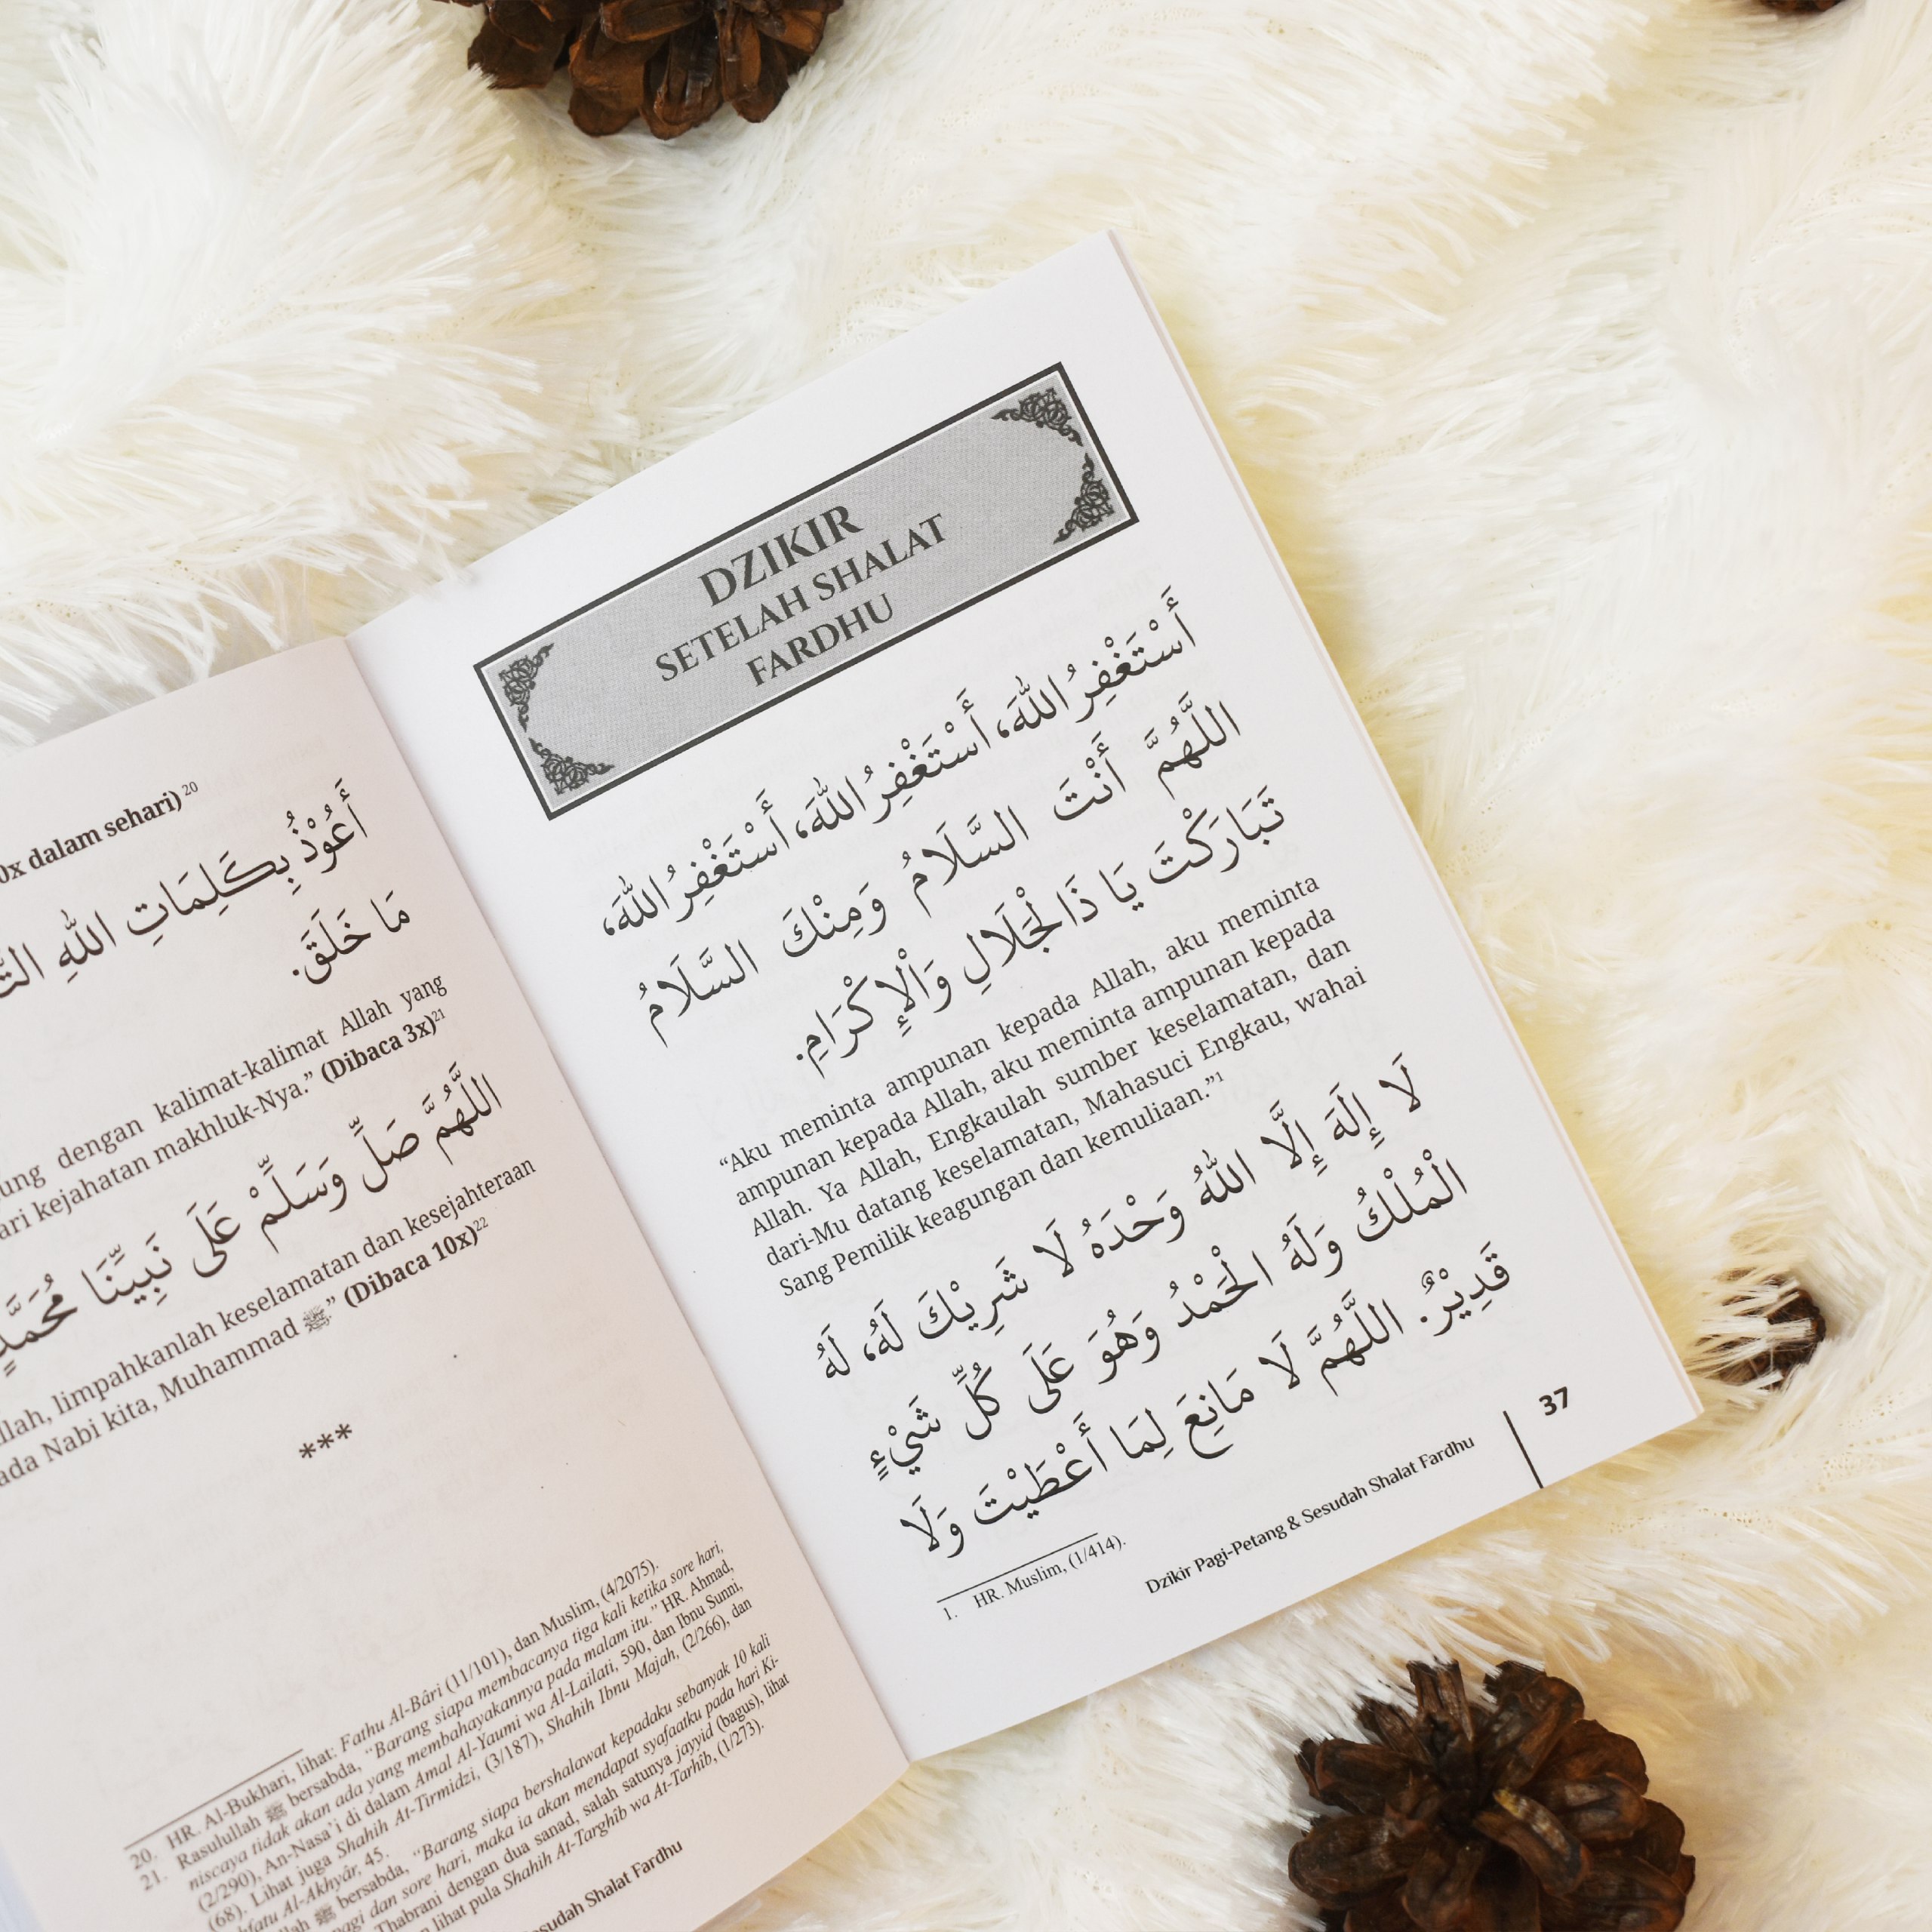 dalam sehari)20
أَعُوْذُ بِكَلِمَاتِ اللهِ
مَا خَلَقَ.
dengan kalimat-kalimat Allah yang
kejahatan makhluk-Nya.” (Dibaca 3x)21
اللَّهُمَّ صَلِّ وَسَلِّمْ عَلَى نَبِيِّنَا مُحَمَّدٍ
limpahkanlah keselamatan dan kesejahteraan
Nabi kita, Muhammad ﷺ.” (Dibaca 10x)22
***
20. HR. Al-Bukhari, lihat: Fathu Al-Bâri (11/101), dan Muslim, (4/2075).
21. Rasulullah ﷺ bersabda, “Barang siapa membacanya tiga kali ketika sore hari,
niscaya tidak akan ada yang membahayakannya pada malam itu.” HR. Ahmad,
(2/290), An-Nasa’i di dalam Amal Al-Yaumi wa Al-Lailati, 590, dan Ibnu Sunni,
(68). Lihat juga Shahih At-Tirmidzi, (3/187), Shahih Ibnu Majah, (2/266), dan
Al-Akhyâr, 45.
ﷺ bersabda, “Barang siapa bershalawat kepadaku sebanyak 10 kali
dan sore hari, maka ia akan mendapat syafaatku pada hari Ki-
Thabrani dengan dua sanad, salah satunya jayyid (bagus), lihat
lihat pula Shahih At-Targhîb wa At-Tarhîb, (1/273).
Shalat Fardhu
DZIKIR
SETELAH SHALAT
FARDHU
أَسْتَغْفِرُ اللهَ، أَسْتَغْفِرُ اللهَ، أَسْتَغْفِرُ اللهَ،
اللَّهُمَّ أَنْتَ السَّلَامُ وَمِنْكَ السَّلَامُ
تَبَارَكْتَ يَا ذَا الْجَلَالِ وَالْإِكْرَامِ.
“Aku meminta ampunan kepada Allah, aku meminta
ampunan kepada Allah, aku meminta ampunan kepada
Allah. Ya Allah, Engkaulah sumber keselamatan, dan
dari-Mu datang keselamatan, Mahasuci Engkau, wahai
Sang Pemilik keagungan dan kemuliaan.”1
لَا إِلَهَ إِلَّا اللهُ وَحْدَهُ لَا شَرِيْكَ لَهُ، لَهُ
الْمُلْكُ وَلَهُ الْحَمْدُ وَهُوَ عَلَى كُلِّ شَيْءٍ
قَدِيْرٌ. اللَّهُمَّ لَا مَانِعَ لِمَا أَعْطَيْتَ وَلَا
1. HR. Muslim, (1/414).
Dzikir Pagi-Petang & Sesudah Shalat Fardhu
37